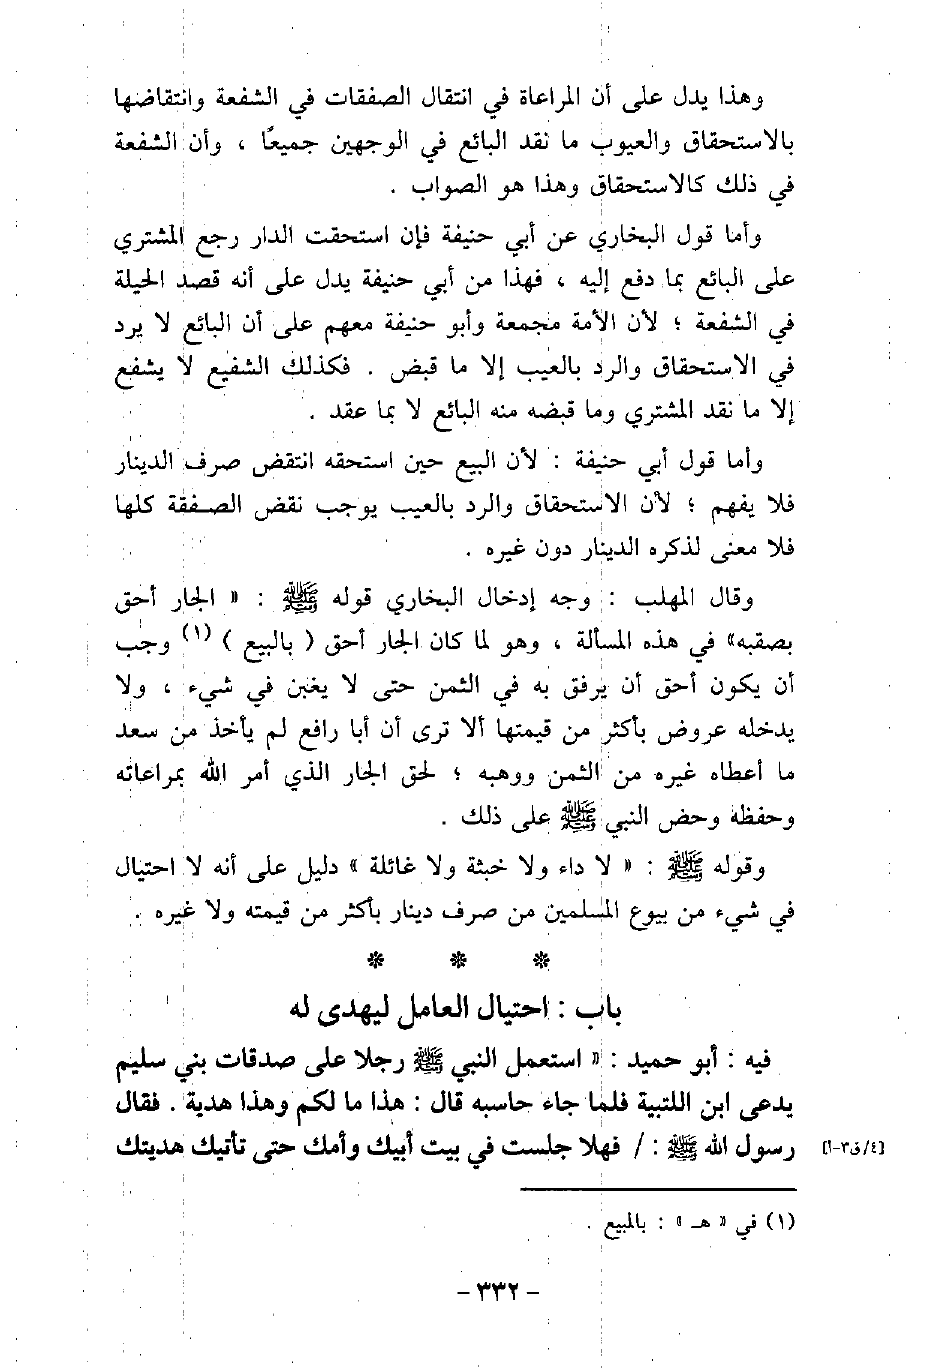 وهذا يدل على أن المراعاة في انتقال الصفقات في الشفعة وانتقاضها
بالاستحقاق والعيوب ما نقد البائع في الوجهين جميعًا ، وأن الشفعة
في ذلك كالاستحقاق وهذا هو الصواب .
وأما قول البخاري عن أبي حنيفة فإن استحقت الدار رجع المشتري
على البائع بما دفع إليه ، فهذا من أبي حنيفة يدل على أنه قصد الحيلة
في الشفعة ؛ لأن الأمة مجمعة وأبو حنيفة معهم على أن البائع لا يرد
في الاستحقاق والرد بالعيب إلا ما قبض . فكذلك الشفيع لا يشفع
إلا ما نقد المشتري وما قبضه منه البائع لا بما عقد .
وأما قول أبي حنيفة : لأن البيع حين استحقه انتقض صرف الدينار
فلا يفهم ؛ لأن الاستحقاق والرد بالعيب يوجب نقض الصفقة كلها
فلا معنى لذكره الدينار دون غيره .
وقال المهلب : وجه إدخال البخاري قوله ﷺ : « الجار أحق
بصقبه» في هذه المسألة ، وهو لما كان الجار أحق ( بالبيع ) (١) وجب
أن يكون أحق أن يرفق به في الثمن حتى لا يغبن في شيء ، ولا
يدخله عروض بأكثر من قيمتها ألا ترى أن أبا رافع لم يأخذ من سعد
ما أعطاه غيره من الثمن ووهبه ؛ لحق الجار الذي أمر الله بمراعاته
وحفظه وحض النبي ﷺ على ذلك .
وقوله ﷺ : « لا داء ولا خبثة ولا غائلة » دليل على أنه لا احتيال
في شيء من بيوع المسلمين من صرف دينار بأكثر من قيمته ولا غيره .
* * *
باب : احتيال العامل ليهدى له
فيه : أبو حميد : « استعمل النبي ﷺ رجلا على صدقات بني سليم
يدعى ابن اللتبية فلما جاء حاسبه قال : هذا ما لكم وهذا هدية . فقال
رسول الله ﷺ : / فهلا جلست في بيت أبيك وأمك حتى تأتيك هديتك [٤/ق٣-أ]
(١) في « هـ » : بالمبيع .
- ٣٣٢ -